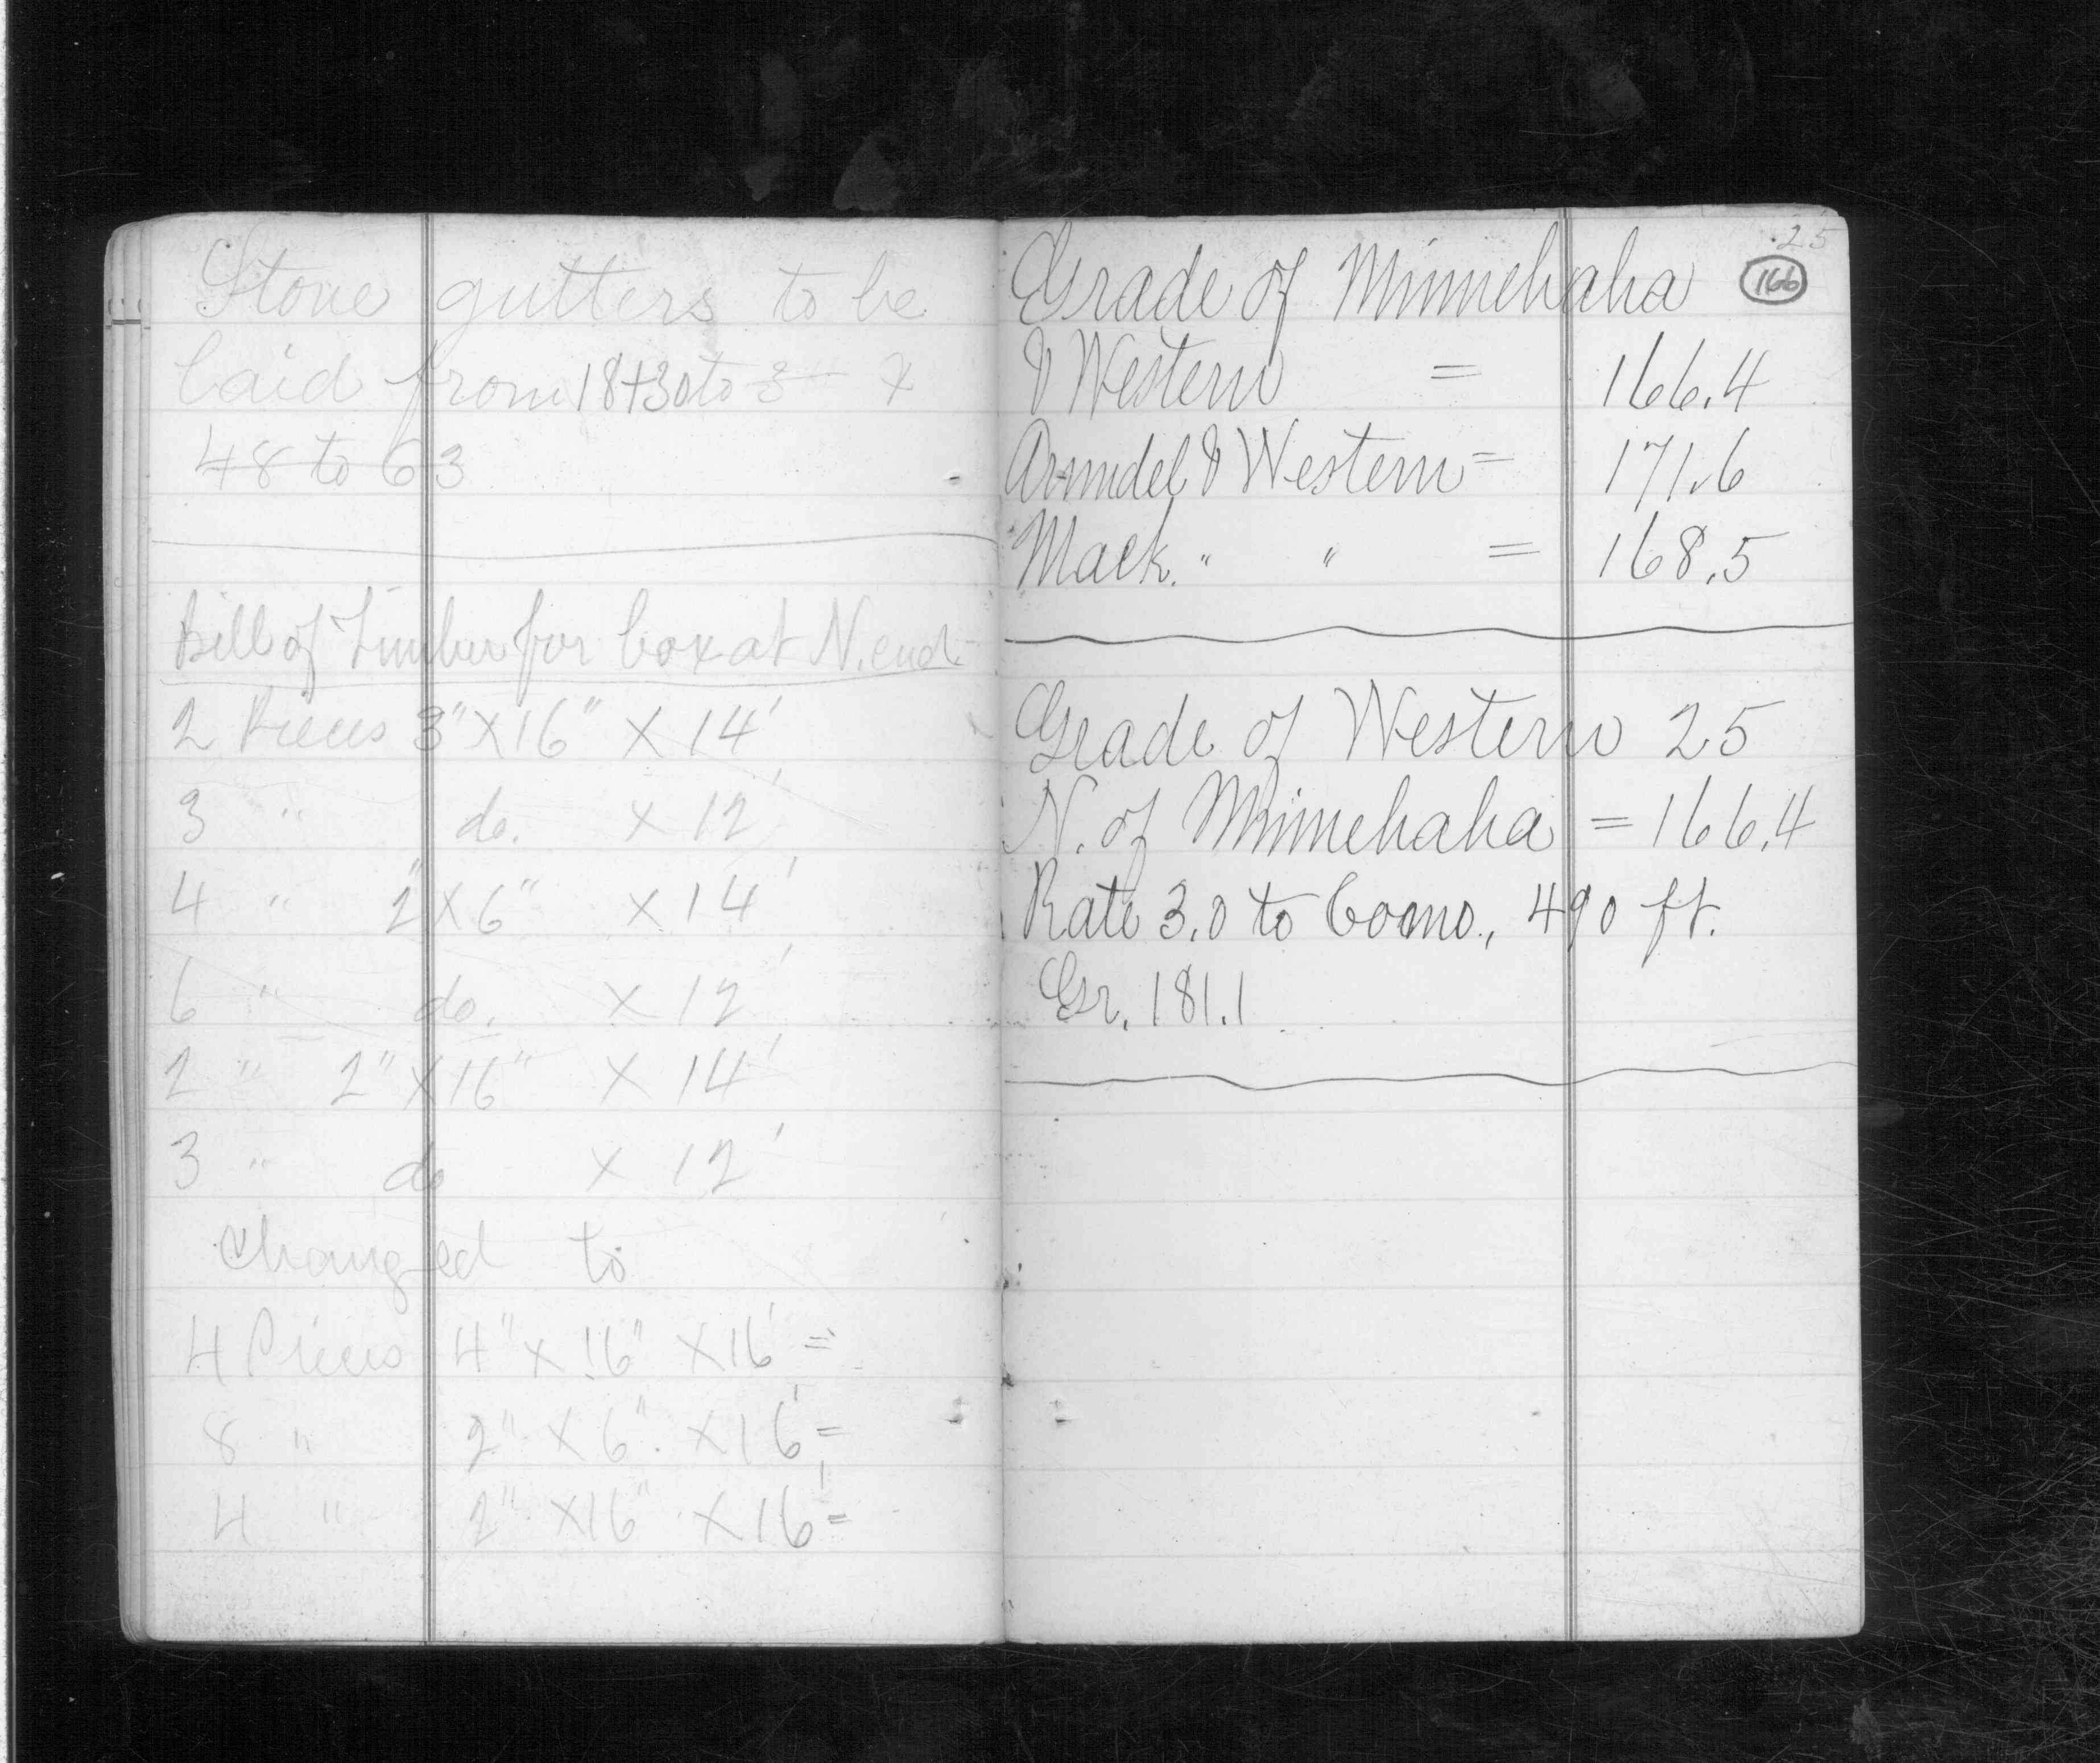 Stone gutters to be
laid from 18+30 to 3
48 to 63
Bill of Timber for box at N. end
2 Pieces 3" X 16" X 14'
3 " do. X 12'
4 " 2" X 6" X 14'
6 " do. X 12'
2 " 2" X 16" X 14'
3 " do X 12'
Changed to
4 Pieces 4" X 16" X 16' =
8 " 2" X 6" X 16' =
4 " 2" X 16" X 16' =
25
166
Grade of Minnehaha
& Western = 166.4
Arundel & Western = 171.6
Mack. " " = 168.5
Grade of Western 25
N. of Minnehaha = 166.4
Rate 3.0 to Como., 490 ft.
Gr. 181.1